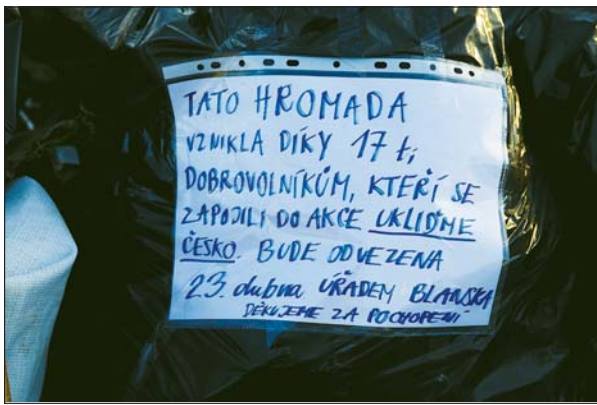 TATO HROMADA
VZNIKLA DÍKY 17 ti
DOBROVOLNÍKŮM, KTEŘÍ SE
ZAPOJILI DO AKCE UKLIĎME
ČESKO. BUDE ODVEZENA
23. dubna ÚŘADEM BLANSKA
DĚKUJEME ZA POCHOPENÍ